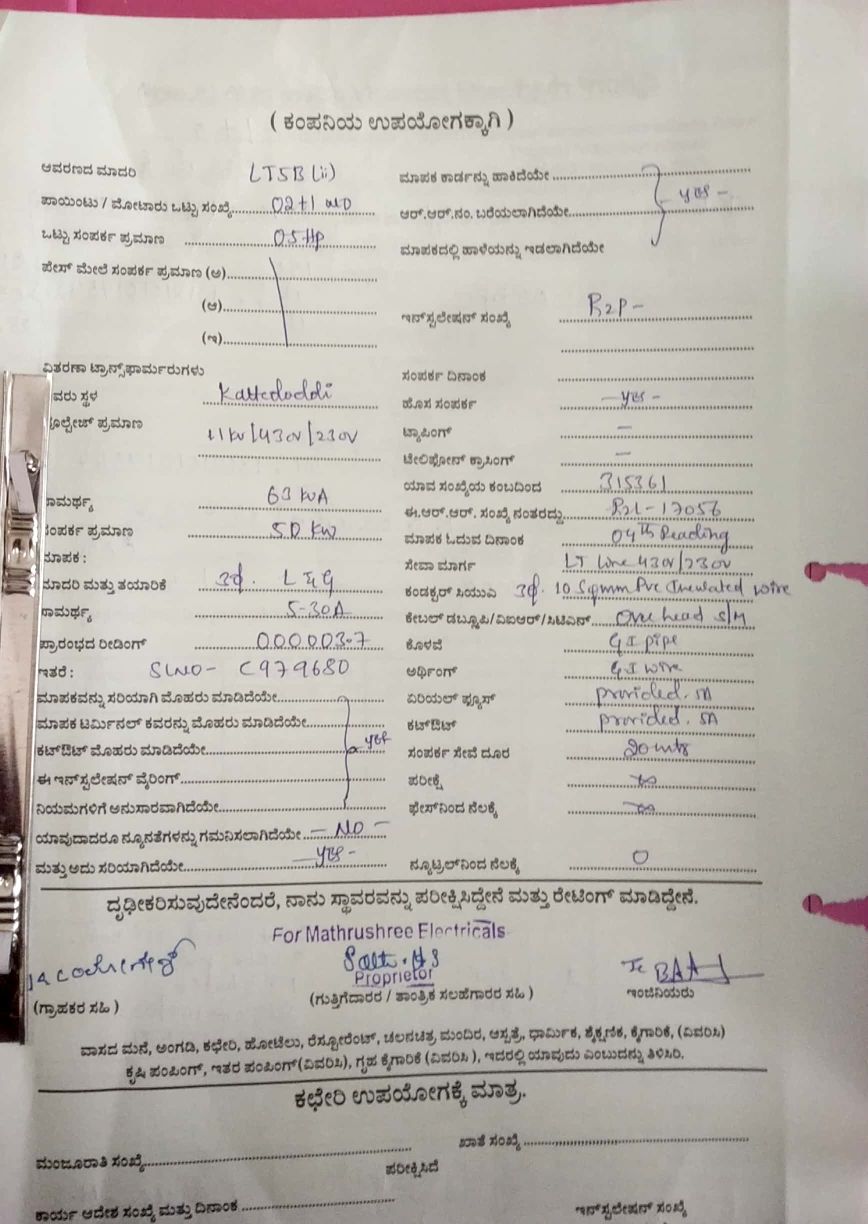 ( ಕಂಪನಿಯ ಉಪಯೋಗಕ್ಕಾಗಿ )
ಆವರಣದ ಮಾದರಿ LT5B (ii)
ಪಾಯಿಂಟು / ಮೋಟಾರು ಒಟ್ಟು ಸಂಖ್ಯೆ 02+1 no
ಒಟ್ಟು ಸಂಪರ್ಕ ಪ್ರಮಾಣ 05 Hp
ಪೇಸ್ ಮೇಲೆ ಸಂಪರ್ಕ ಪ್ರಮಾಣ (ಅ)
(ಆ)
(ಇ)
ವಿತರಣಾ ಟ್ರಾನ್ಸ್‌ಫಾರ್ಮರುಗಳು
ವರು ಸ್ಥಳ Kattedoddi
ವೋಲ್ಟೇಜ್ ಪ್ರಮಾಣ 11kv/430v/230v
ಸಾಮರ್ಥ್ಯ 63 kVA
ಸಂಪರ್ಕ ಪ್ರಮಾಣ 50 kw
ಮಾಪಕ :
ಮಾದರಿ ಮತ್ತು ತಯಾರಿಕೆ 3ф. L & G
ಸಾಮರ್ಥ್ಯ 5-30A
ಪ್ರಾರಂಭದ ರೀಡಿಂಗ್ 000003.7
ಇತರೆ : SLNO- C979680
ಮಾಪಕವನ್ನು ಸರಿಯಾಗಿ ಮೊಹರು ಮಾಡಿದೆಯೇ
ಮಾಪಕ ಟರ್ಮಿನಲ್ ಕವರನ್ನು ಮೊಹರು ಮಾಡಿದೆಯೇ
ಕಟ್‌ಔಟ್ ಮೊಹರು ಮಾಡಿದೆಯೇ yes
ಈ ಇನ್‌ಸ್ಟಲೇಷನ್ ವೈರಿಂಗ್
ನಿಯಮಗಳಿಗೆ ಅನುಸಾರವಾಗಿದೆಯೇ
ಯಾವುದಾದರೂ ನ್ಯೂನತೆಗಳನ್ನು ಗಮನಿಸಲಾಗಿದೆಯೇ - NO -
ಮತ್ತು ಅದು ಸರಿಯಾಗಿದೆಯೇ - yes -
ಮಾಪಕ ಕಾರ್ಡನ್ನು ಹಾಕಿದೆಯೇ
ಆರ್.ಆರ್.ನಂ. ಬರೆಯಲಾಗಿದೆಯೇ - yes -
ಮಾಪಕದಲ್ಲಿ ಹಾಳೆಯನ್ನು ಇಡಲಾಗಿದೆಯೇ
ಇನ್‌ಸ್ಟಲೇಷನ್ ಸಂಖ್ಯೆ
ಸಂಪರ್ಕ ದಿನಾಂಕ
ಹೊಸ ಸಂಪರ್ಕ - yes -
ಟ್ಯಾಪಿಂಗ್ -
ಟೆಲಿಫೋನ್ ಕ್ರಾಸಿಂಗ್ -
ಯಾವ ಸಂಖ್ಯೆಯ ಕಂಬದಿಂದ 315361
ಈ.ಆರ್.ಆರ್. ಸಂಖ್ಯೆ ನಂತರದ್ದು
ಮಾಪಕ ಓದುವ ದಿನಾಂಕ 04th Reading
ಸೇವಾ ಮಾರ್ಗ LT Line 430v/230v
ಕಂಡಕ್ಟರ್ ಸಿಯುಎ 3ф. 10 Sqmm Pvc Insulated wire
ಕೇಬಲ್ ಡಬ್ಲೂಪಿ/ವಿಐಆರ್/ಸಿಟಿಎಸ್ Over head S/M
ಕೊಳವೆ GI pipe
ಅರ್ಥಿಂಗ್ GI wire
ಏರಿಯಲ್ ಫ್ಯೂಸ್ provided. 5A
ಕಟ್‌ಔಟ್ provided. 5A
ಸಂಪರ್ಕ ಸೇವೆ ದೂರ 20 mts
ಪರೀಕ್ಷೆ ∞
ಫೇಸ್‌ನಿಂದ ನೆಲಕ್ಕೆ ∞
ನ್ಯೂಟ್ರಲ್‌ನಿಂದ ನೆಲಕ್ಕೆ 0
ದೃಢೀಕರಿಸುವುದೇನೆಂದರೆ, ನಾನು ಸ್ಥಾವರವನ್ನು ಪರೀಕ್ಷಿಸಿದ್ದೇನೆ ಮತ್ತು ರೇಟಿಂಗ್ ಮಾಡಿದ್ದೇನೆ.
For Mathrushree Electricals
Proprietor
(ಗ್ರಾಹಕರ ಸಹಿ )
(ಗುತ್ತಿಗೆದಾರರ / ತಾಂತ್ರಿಕ ಸಲಹೆಗಾರರ ಸಹಿ )
ಇಂಜಿನಿಯರು
ವಾಸದ ಮನೆ, ಅಂಗಡಿ, ಕಛೇರಿ, ಹೋಟೆಲು, ರೆಸ್ಟೋರೆಂಟ್, ಚಲನಚಿತ್ರ ಮಂದಿರ, ಆಸ್ಪತ್ರೆ, ಧಾರ್ಮಿಕ, ಶೈಕ್ಷಣಿಕ, ಕೈಗಾರಿಕೆ, (ವಿವರಿಸಿ)
ಕೃಷಿ ಪಂಪಿಂಗ್, ಇತರ ಪಂಪಿಂಗ್(ವಿವರಿಸಿ), ಗೃಹ ಕೈಗಾರಿಕೆ (ವಿವರಿಸಿ ), ಇದರಲ್ಲಿ ಯಾವುದು ಎಂಬುದನ್ನು ತಿಳಿಸಿರಿ.
ಕಛೇರಿ ಉಪಯೋಗಕ್ಕೆ ಮಾತ್ರ.
ಮಂಜೂರಾತಿ ಸಂಖ್ಯೆ
ಖಾತೆ ಸಂಖ್ಯೆ
ಪರೀಕ್ಷಿಸಿದೆ
ಕಾರ್ಯ ಆದೇಶ ಸಂಖ್ಯೆ ಮತ್ತು ದಿನಾಂಕ
ಇನ್‌ಸ್ಟಲೇಷನ್ ಸಂಖ್ಯೆ